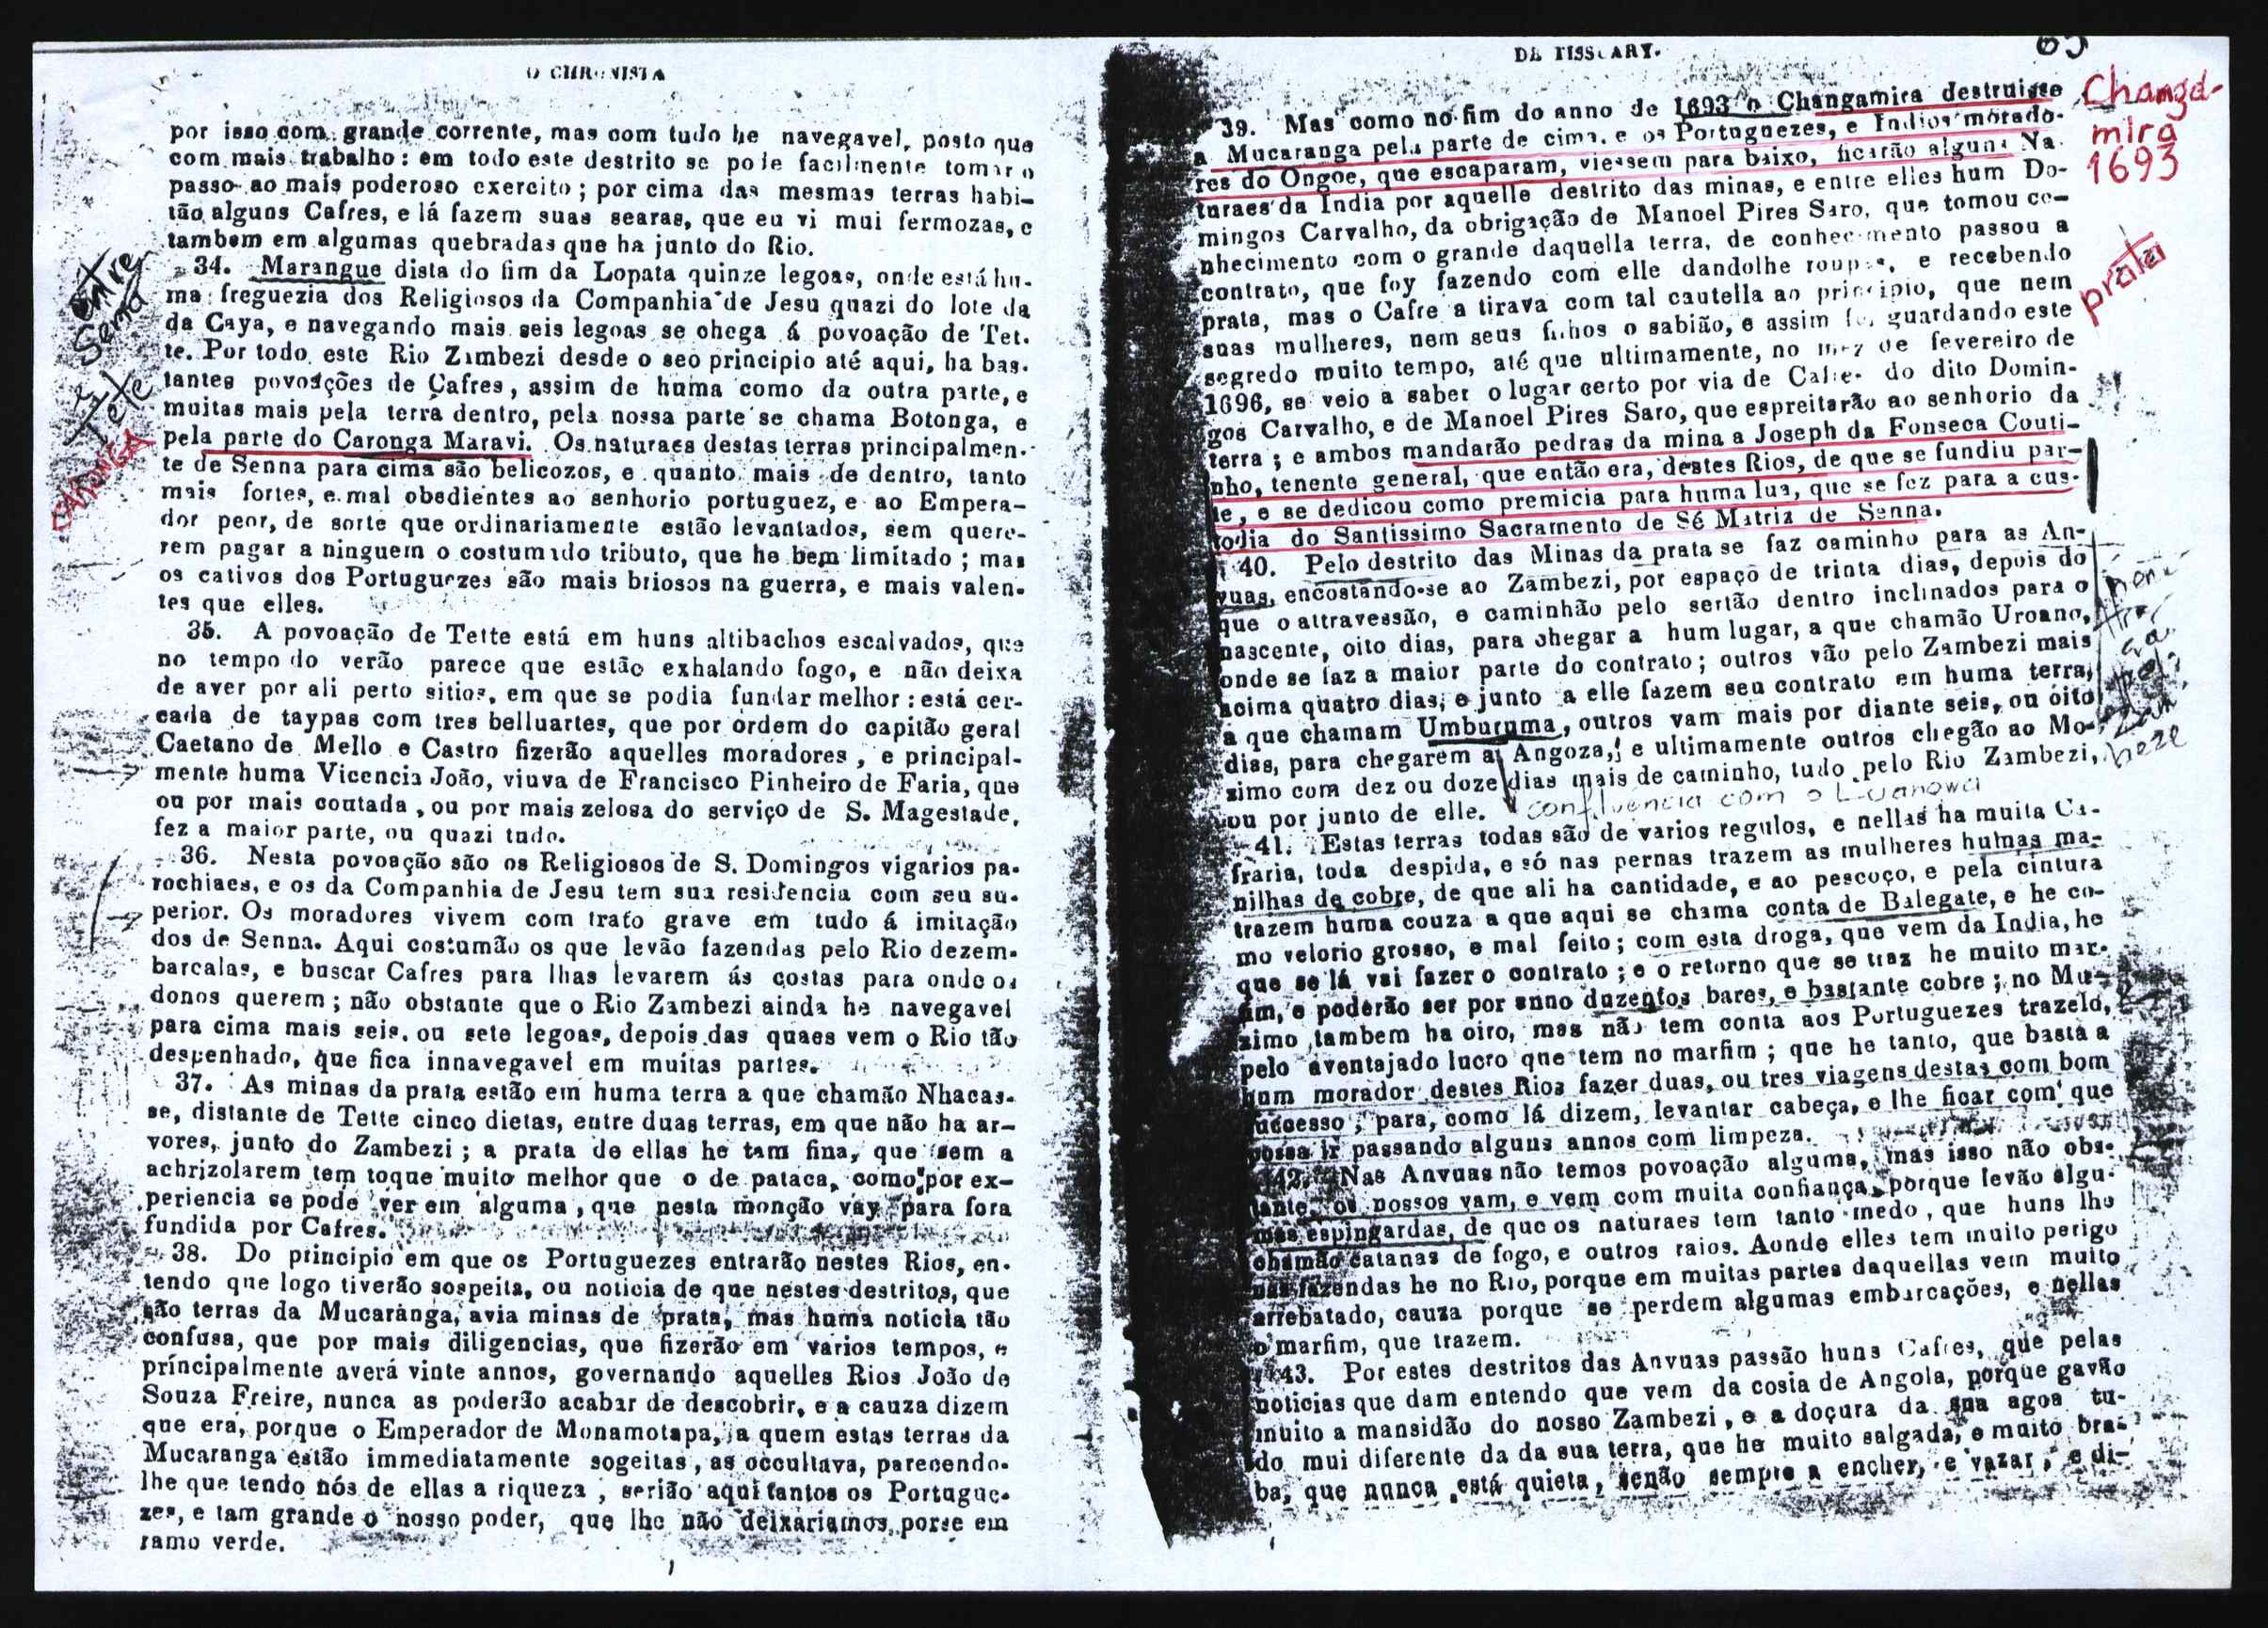 O CHRONISTA
por isso com grande corrente, mas com tudo he navegavel, posto que
com mais trabalho: em todo este destrito se pode facilmente tomar o
passo ao mais poderoso exercito; por cima das mesmas terras habi-
tão alguns Cafres, e lá fazem suas searas, que eu vi mui fermozas, e
tambem em algumas quebradas que ha junto do Rio.
34. Marangue dista do fim da Lopata quinze legoas, onde está hu-
ma freguezia dos Religiosos da Companhia de Jesu quazi do lote da
da Caya, e navegando mais seis legoas se chega á povoação de Tet.
te. Por todo este Rio Zimbezi desde o seo principio até aqui, ha bas.
tantes povoações de Cafres, assim de huma como da outra parte, e
muitas mais pela terra dentro, pela nossa parte se chama Botonga, e
pela parte do Caronga Maravi. Os naturaes destas terras principalmen.
te de Senna para cima são belicozos, e quanto mais de dentro, tanto
mais fortes, e mal obedientes ao senhorio portuguez, e ao Empera-
dor peor, de sorte que ordinariamente estão levantados, sem quere-
rem pagar a ninguem o costumado tributo, que he bem limitado; mas
os cativos dos Portuguezes são mais briosos na guerra, e mais valen-
tes que elles.
35. A povoação de Tette está em huns altibachos escalvados, que
no tempo do verão parece que estão exhalando fogo, e não deixa
de aver por ali perto sitios, em que se podia fundar melhor: está cer-
cada de taypas com tres belluartes, que por ordem do capitão geral
Caetano de Mello e Castro fizerão aquelles moradores, e principal-
mente huma Vicencia João, viuva de Francisco Pinheiro de Faria, que
ou por mais coutada, ou por mais zelosa do serviço de S. Magestade,
fez a maior parte, ou quazi tudo.
36. Nesta povoação são os Religiosos de S. Domingos vigarios pa-
rochiaes, e os da Companhia de Jesu tem sua residencia com seu su-
perior. Os moradores vivem com trato grave em tudo á imitação
dos de Senna. Aqui costumão os que levão fazendas pelo Rio dezem-
barcalas, e buscar Cafres para lhas levarem ás costas para onde os
donos querem; não obstante que o Rio Zambezi ainda he navegavel
para cima mais seis, ou sete legoas, depois das quaes vem o Rio tão
despenhado, que fica innavegavel em muitas partes.
37. As minas da prata estão em huma terra a que chamão Nhacas-
se, distante de Tette cinco dietas, entre duas terras, em que não ha ar-
vores, junto do Zambezi; a prata de ellas he tam fina, que sem a
achrizolarem tem toque muito melhor que o de pataca, como por ex-
periencia se pode ver em alguma, que nesta monção vay para fora
fundida por Cafres.
38. Do principio em que os Portuguezes entrarão nestes Rios, en-
tendo que logo tiverão sospeita, ou noticia de que nestes destritos, que
são terras da Mucaranga, avia minas de prata, mas huma noticia tão
confusa, que por mais diligencias, que fizerão em varios tempos, e
principalmente averá vinte annos, governando aquelles Rios João de
Souza Freire, nunca as poderão acabar de descobrir, e a cauza dizem
que era, porque o Emperador de Monamotapa, a quem estas terras da
Mucaranga estão immediatamente sogeitas, as occultava, parecendo-
lhe que tendo nós de ellas a riqueza, serião aqui tantos os Portugue-
zes, e tam grande o nosso poder, que lhe não deixariamos porse em
ramo verde.
entre
Sena
e
Tete
CARONGA
63
39. Mas como no fim do anno de 1693 o Changamira destruisse
a Mucaranga pela parte de cima, e os Portuguezes, e Indios morado-
res do Ongoe, que escaparam, viessem para baixo, ficarão alguns Na-
turaes da India por aquelle destrito das minas, e entre elles hum Do-
mingos Carvalho, da obrigação de Manoel Pires Saro, que tomou co-
nhecimento com o grande daquella terra, de conhecimento passou a
contrato, que foy fazendo com elle dandolhe roupas, e recebendo
prata, mas o Cafre a tirava com tal cautella ao principio, que nem
suas mulheres, nem seus filhos o sabião, e assim foi guardando este
segredo muito tempo, até que ultimamente, no mez de fevereiro de
1696, se veio a saber o lugar certo por via de Cafres do dito Domin-
gos Carvalho, e de Manoel Pires Saro, que espreitarão ao senhorio da
terra; e ambos mandarão pedras da mina a Joseph da Fonseca Couti-
nho, tenente general, que então era, destes Rios, de que se fundiu par-
te, e se dedicou como premicia para huma lua, que se fez para a cus-
todia do Santissimo Sacramento de Sé Matriz de Senna.
40. Pelo destrito das Minas da prata se faz caminho para as An-
vuas, encostando-se ao Zambezi, por espaço de trinta dias, depois do
que o attravessão, e caminhão pelo sertão dentro inclinados para o
nascente, oito dias, para chegar a hum lugar, a que chamão Uroano,
onde se faz a maior parte do contrato; outros vão pelo Zambezi mais
acima quatro dias, e junto a elle fazem seu contrato em huma terra,
a que chamam Umburuma, outros vam mais por diante seis, ou oito
dias, para chegarem a Angoza, e ultimamente outros chegão ao Mo-
zimo com dez ou doze dias mais de caminho, tudo pelo Rio Zambezi,
ou por junto de elle.
confluencia com o Luanowa
41. Estas terras todas são de varios regulos, e nellas ha muita Ca-
fraria, toda despida, e só nas pernas trazem as mulheres humas ma-
nilhas de cobre, de que ali ha cantidade, e ao pescoço, e pela cintura
trazem huma couza a que aqui se chama conta de Balegate, e he co-
mo velorio grosso, e mal feito; com esta droga, que vem da India, he
que se lá vai fazer o contrato; e o retorno que se traz he muito mar-
fim, e poderão ser por anno duzentos bares, e bastante cobre; no Mu-
zimo tambem ha oiro, mas não tem conta aos Portuguezes trazelo,
pelo aventajado lucro que tem no marfim; que he tanto, que basta a
hum morador destes Rios fazer duas, ou tres viagens destas com bom
successo, para, como lá dizem, levantar cabeça, e lhe ficar com que
possa ir passando alguns annos com limpeza.
42. Nas Anvuas não temos povoação alguma, mas isso não obs-
tante, os nossos vam, e vem com muita confiança, porque levão algu-
mas espingardas, de que os naturaes tem tanto medo, que huns lhe
chamão catanas de fogo, e outros raios. Aonde elles tem muito perigo
nas fazendas he no Rio, porque em muitas partes daquellas vem muito
arrebatado, cauza porque se perdem algumas embarcações, e nellas
o marfim, que trazem.
43. Por estes destritos das Anvuas passão huns Cafres, que pelas
noticias que dam entendo que vem da costa de Angola, porque gavão
muito a mansidão do nosso Zambezi, e a doçura da sua agoa tu-
do mui diferente da da sua terra, que he muito salgada, e muito bra-
ba, que nunca está quieta, senão sempre a encher, e vazar, e di-
Changa-
mira
1693
prata